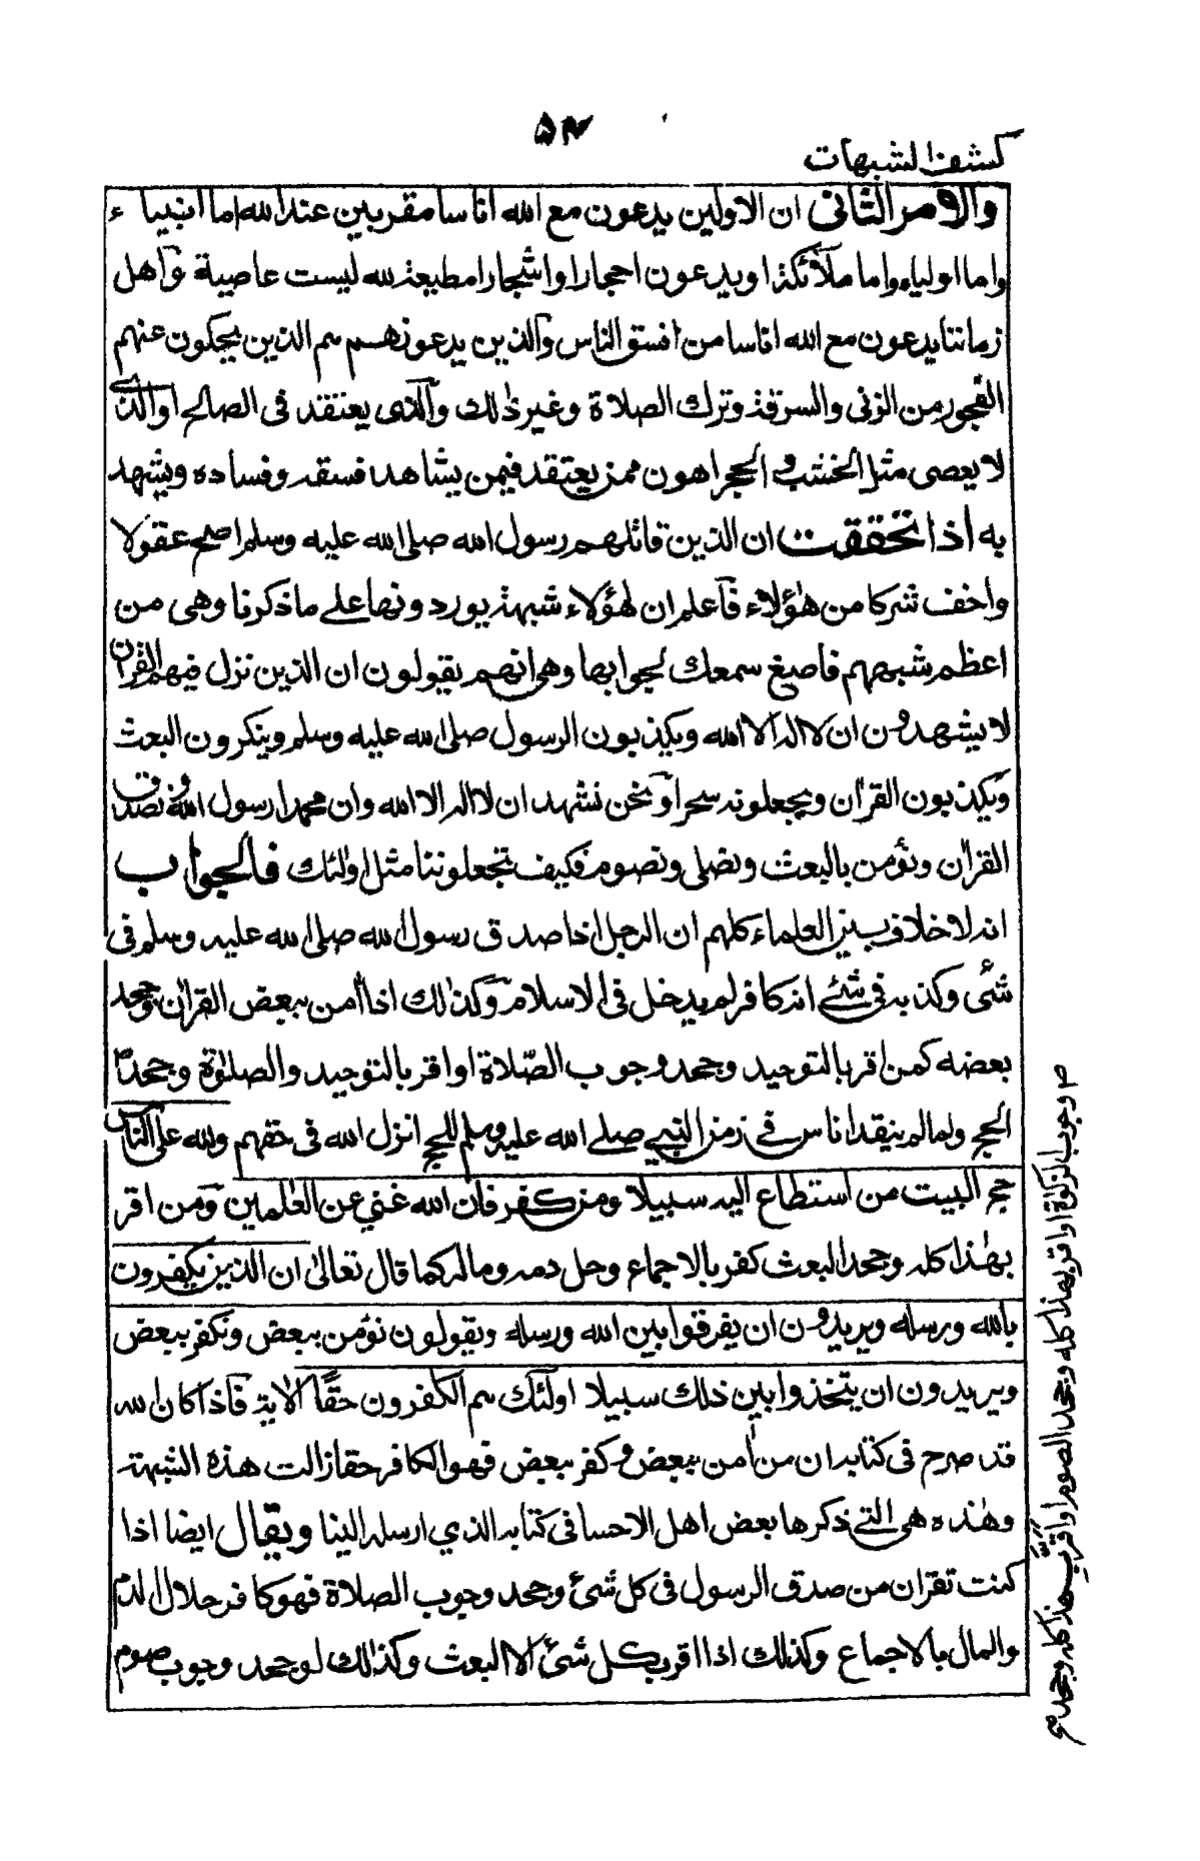 ۵۴
كشف الشبهات
والامر الثانى ان الاولين يدعون مع الله اناسا مقربين عند الله اما انبياء
واما اولياء واما ملآئكة او يدعون احجارا واشجارا مطيعة لله ليست عاصية وآهل
زماننا يدعون مع الله اناسا من افسق الناس والذين يدعونهم هم الذين يحكون عنهم
الفجور من الزنى والسرقة وترك الصلاة وغير ذلك والذى يعتقد فى الصالح او الذى
لا يعصى مثل الخشب والحجر اهون ممن يعتقد فيمن يشاهد فسقه وفساده ويشهد
به اذا تحققت ان الذين قاتلهم رسول الله صلى الله عليه وسلم اصح عقولا
واخف شركا من هؤلاء فآعلم ان لهؤلاء شبهة يوردونها على ما ذكرنا وهى من
اعظم شبههم فاصغ سمعك لجوابها وهى انهم يقولون ان الذين نزل فيهم القرآن
لا يشهدون ان لا اله الا الله ويكذبون الرسول صلى الله عليه وسلم وينكرون البعث
ويكذبون القران ويجعلونه سحرا ونحن نشهد ان لا اله الا الله وان محمدا رسول الله ونصدق
القران ونؤمن بالبعث ونصلى ونصوم فكيف تجعلوننا مثل اولئك فالجواب
انه لا خلاف بين العلماء كلهم ان الرجل اذا صدق رسول الله صلى الله عليه وسلم فى
شىء وكذبه فى شئ انه كافر لم يدخل فى الاسلام وكذلك اذا أمن ببعض القران وجحد
بعضه كمن اقر بالتوحيد وجحد وجوب الصّلاة او اقر بالتوحيد والصلوة وجحد
الحج ولما لم ينقد اناس فى زمن النبي صلى الله عليه وسلم للحج انزل الله فى حقهم ولله على الناس
حج البيت من استطاع اليه سبيلا ومن كفر فان الله غني عن العلمين ومن اقر
بهذا كله وجحد البعث كفر بالاجماع وحل دمه وماله كما قال تعالى ان الذين يكفرون
بالله ورسله ويريدون ان يفرقوا بين الله ورسله ويقولون نؤمن ببعض ونكفر ببعض
ويريدون ان يتخذوا بين ذلك سبيلا اولئك هم الكفرون حقًا الاية فآذا كان الله
قد صرح فى كتابه ان من أمن ببعض وكفر ببعض فهو الكافر حقا زالت هذه الشبهة
وهذه هى التي ذكرها بعض اهل الاحسا فى كتابه الذي ارسله الينا ويقال ايضا اذا
كنت تقر ان من صدق الرسول فى كل شئ وجحد وجوب الصلاة فهو كافر حلال الدم
والمال بالاجماع وكذلك اذا اقر بكل شئ الا البعث وكذلك لو جحد وجوب صوم
وجوب الزكوة او اقر بهذا كله وجحد الصوم او اقر بهذا كله وجحد